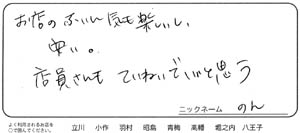 お店のふいん気も楽しいし
安い。
店員さんも ていねいでいいと思う
ニックネーム のん
よく利用されるお店を
○で囲んでください。 立川 小作 羽村 昭島 青梅 高幡 堀之内 八王子